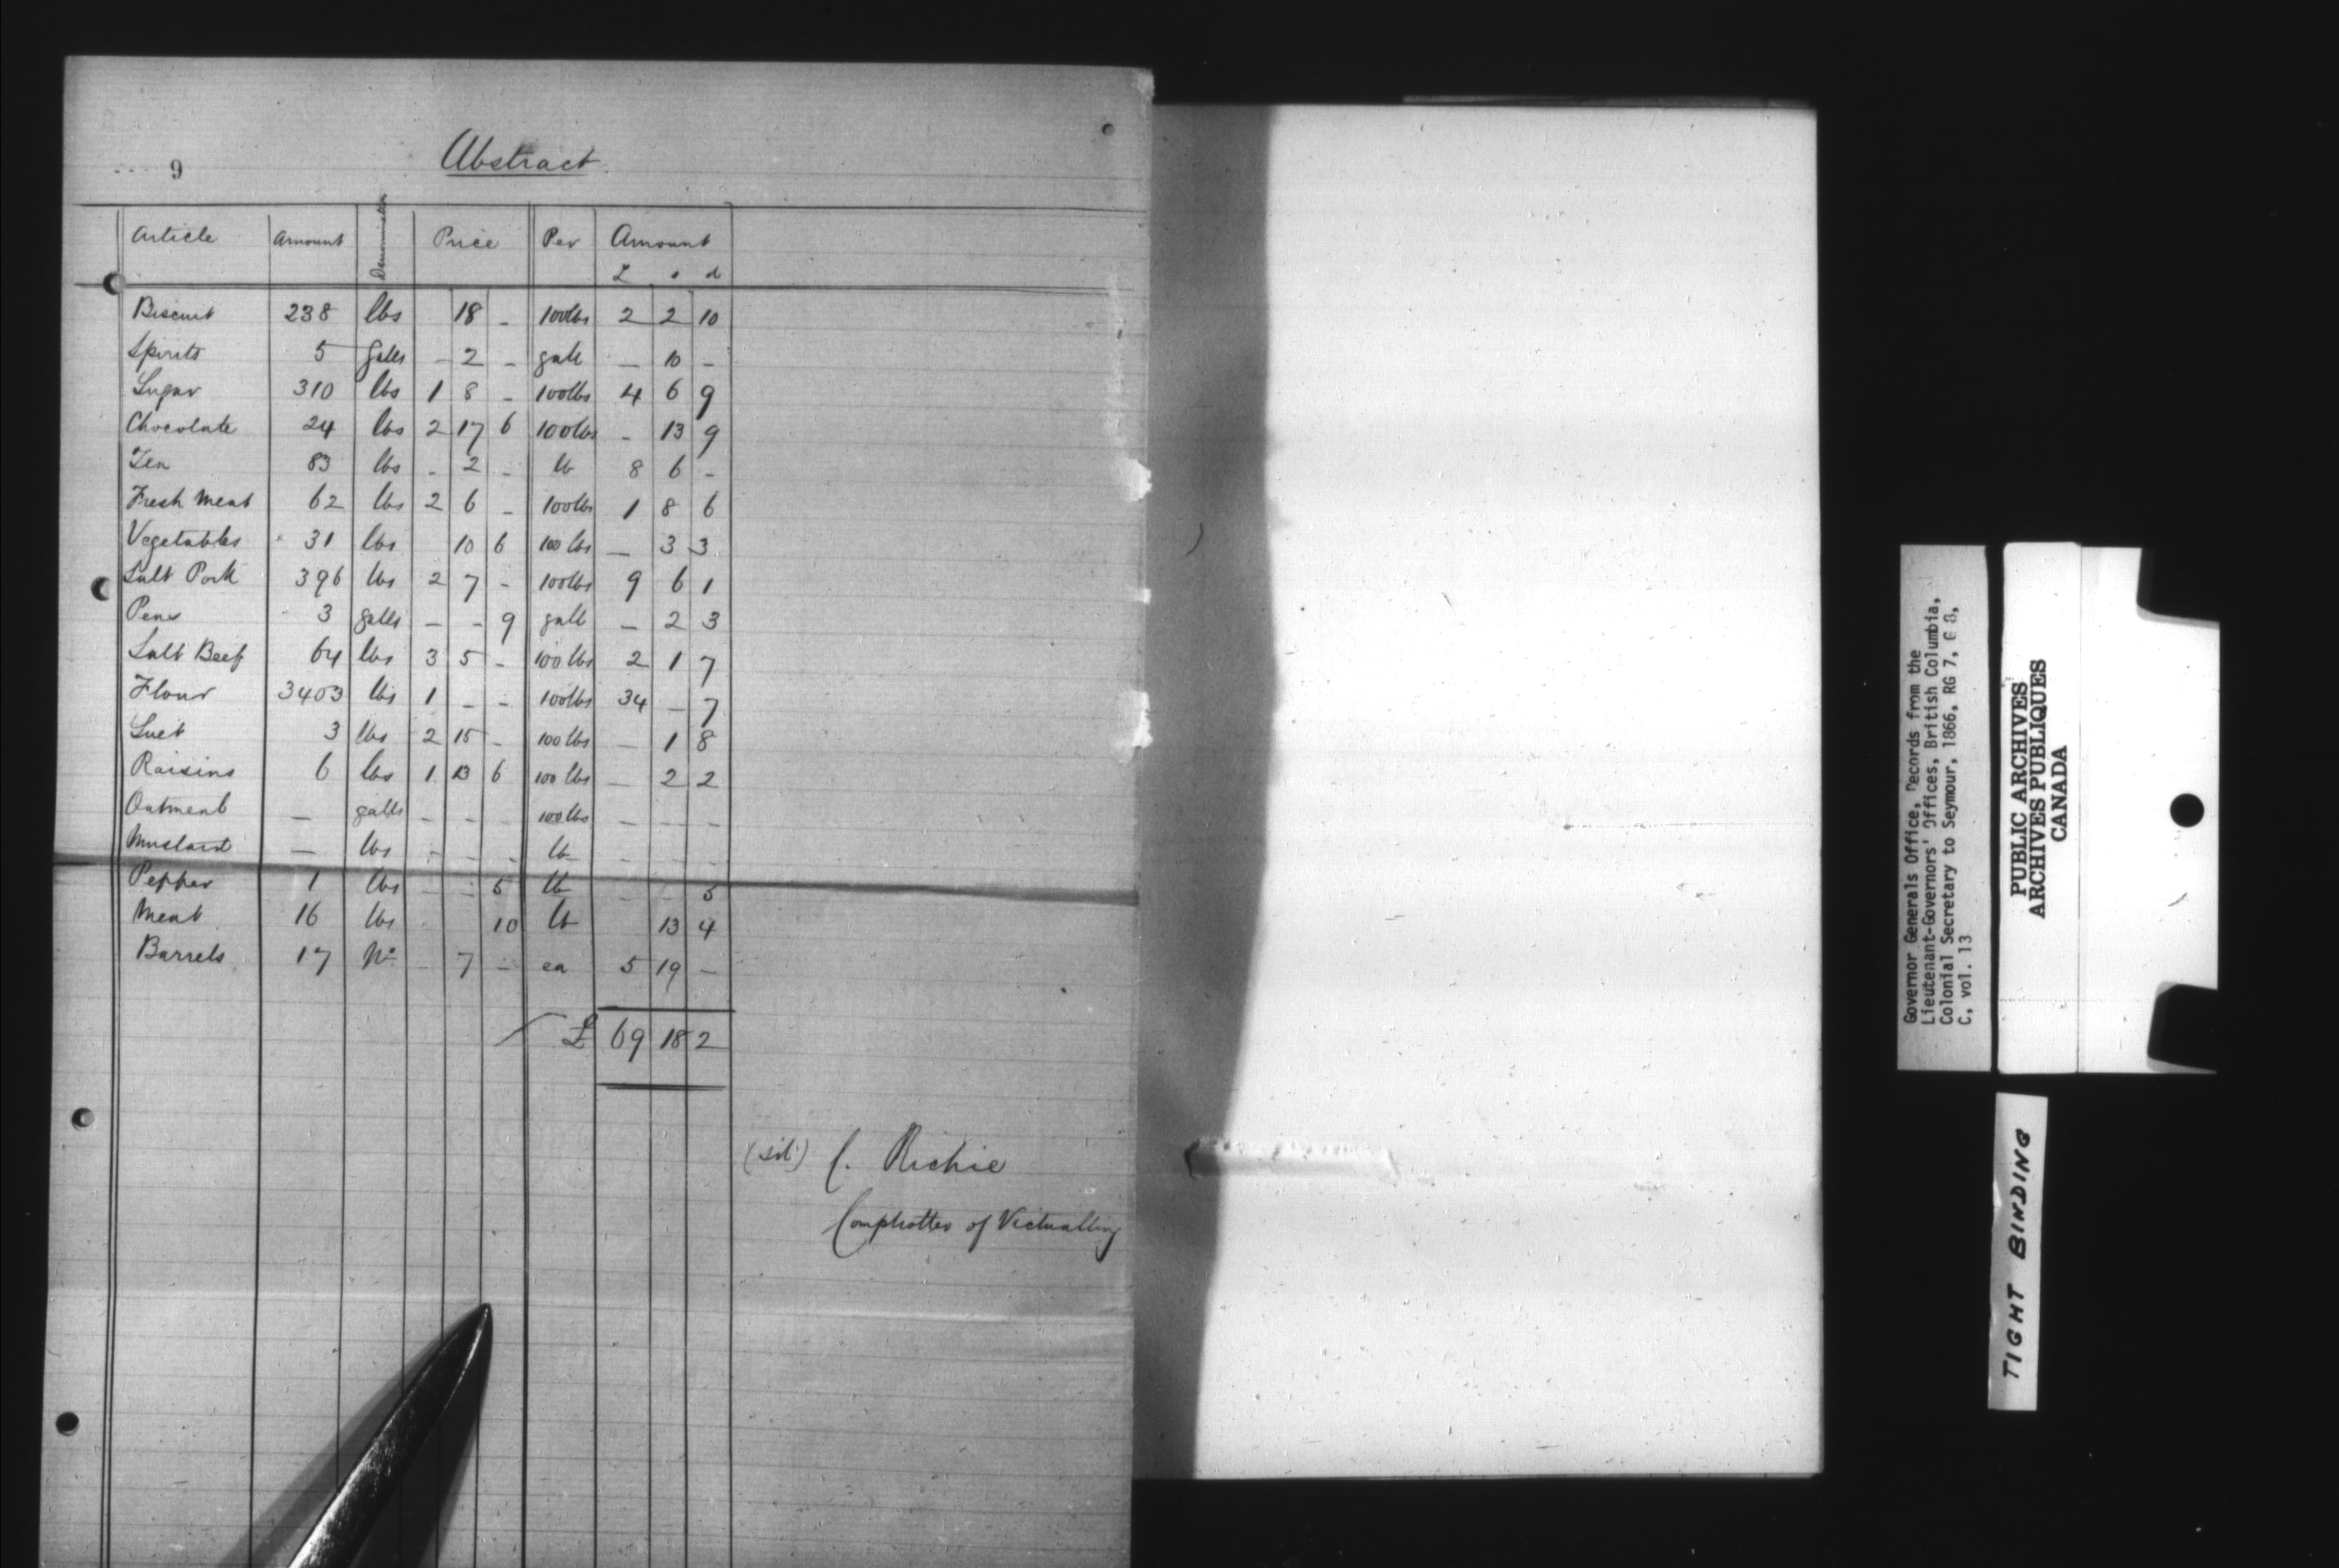 9
Abstract
Article Amount Denomination Price Per Amount
£ s d
Biscuit 238 lbs 18 - 100lbs 2 2 10
Spirits 5 Galls - 2 - gall - 10 -
Sugar 310 lbs 1 8 - 100lbs 4 6 9
Chocolate 24 lbs 2 17 6 100lbs - 13 9
Tea 83 lbs - 2 - lb 8 6 -
Fresh Meat 62 lbs 2 6 - 100lbs 1 8 6
Vegetables 31 lbs 10 6 100 lbs - 3 3
Salt Pork 396 lbs 2 7 - 100lbs 9 6 1
Peas 3 galls - - 9 gall - 2 3
Salt Beef 64 lbs 3 5 - 100 lbs 2 1 7
Flour 3403 lbs 1 - - 100lbs 34 - 7
Suet 3 lbs 2 15 - 100 lbs - 1 8
Raisins 6 lbs 1 13 6 100 lbs - 2 2
Oatmeal - galls - - - 100 lbs - - -
Mustard - lbs - - - lb - - -
Pepper 1 lbs - - 5 lb - - 5
Meat 16 lbs 10 lb 13 4
Barrels 17 No - 7 - ea 5 19 -
£ 69 18 2
C. Richie
Comptroller of Victualling
Governor Generals Office, Records from the
Lieutenant-Governors' Offices, British Columbia,
Colonial Secretary to Seymour, 1866, RG 7, G 8,
C, vol. 13
PUBLIC ARCHIVES
ARCHIVES PUBLIQUES
CANADA
TIGHT BINDING